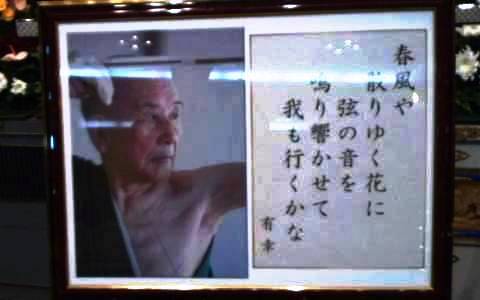 春風や
散りゆく花に
弦の音を
鳴り響かせて
我も行くかな
有幸